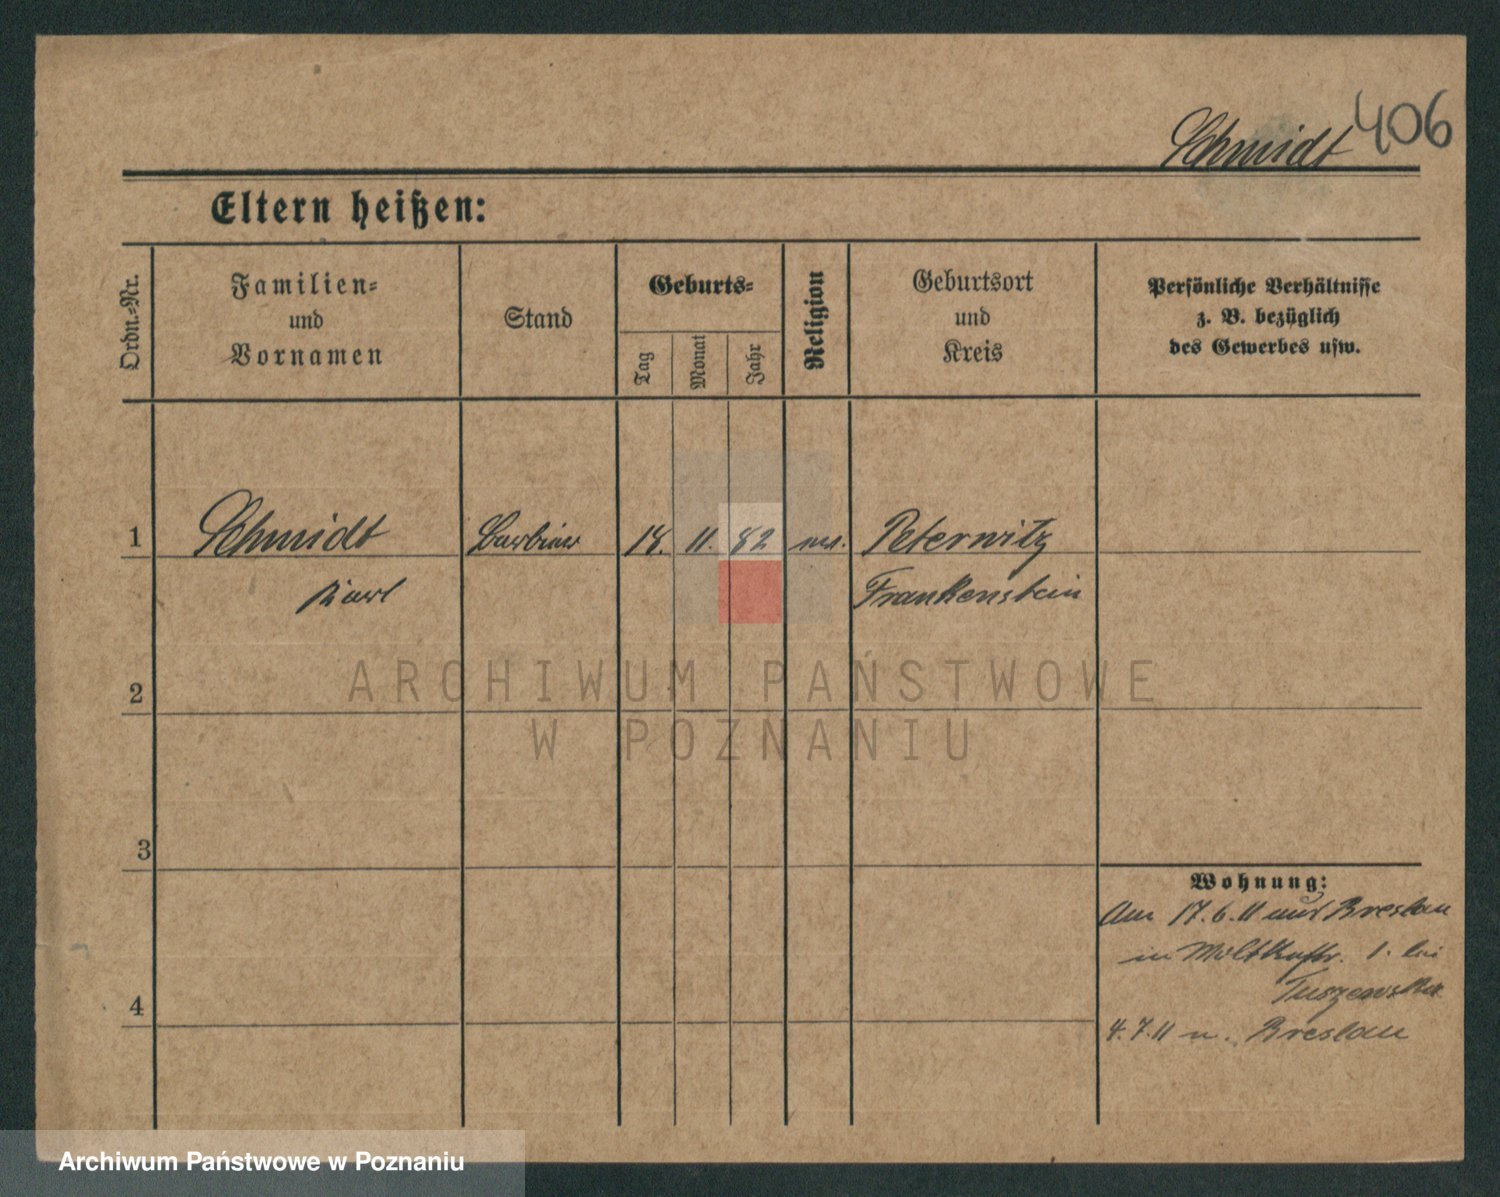 Schmidt 406
Eltern heißen:
Ordn.-Nr.
Familien-
und
Vornamen
Stand
Geburts-
Tag
Monat
Jahr
Religion
Geburtsort
und
Kreis
Persönliche Verhältnisse
z. B. bezüglich
des Gewerbes usw.
1 Schmidt Barbier 18. 11. 82 Peterwitz
Karl Frankenstein
2
3
4
Wohnung:
Am 17.6.11 aus Breslau
in Moltkestr. 1. bei
Tuszewska
4.7.11 n. Breslau
ARCHIWUM PAŃSTWOWE
W POZNANIU
Archiwum Państwowe w Poznaniu